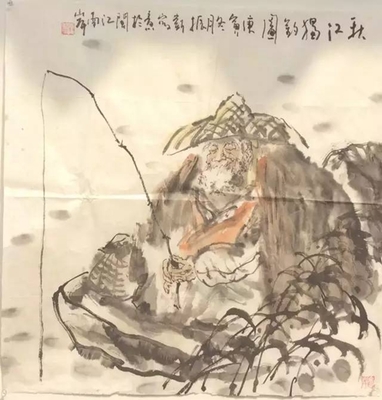 秋江獨釣圖庚寅冬月振意於閩江南岸